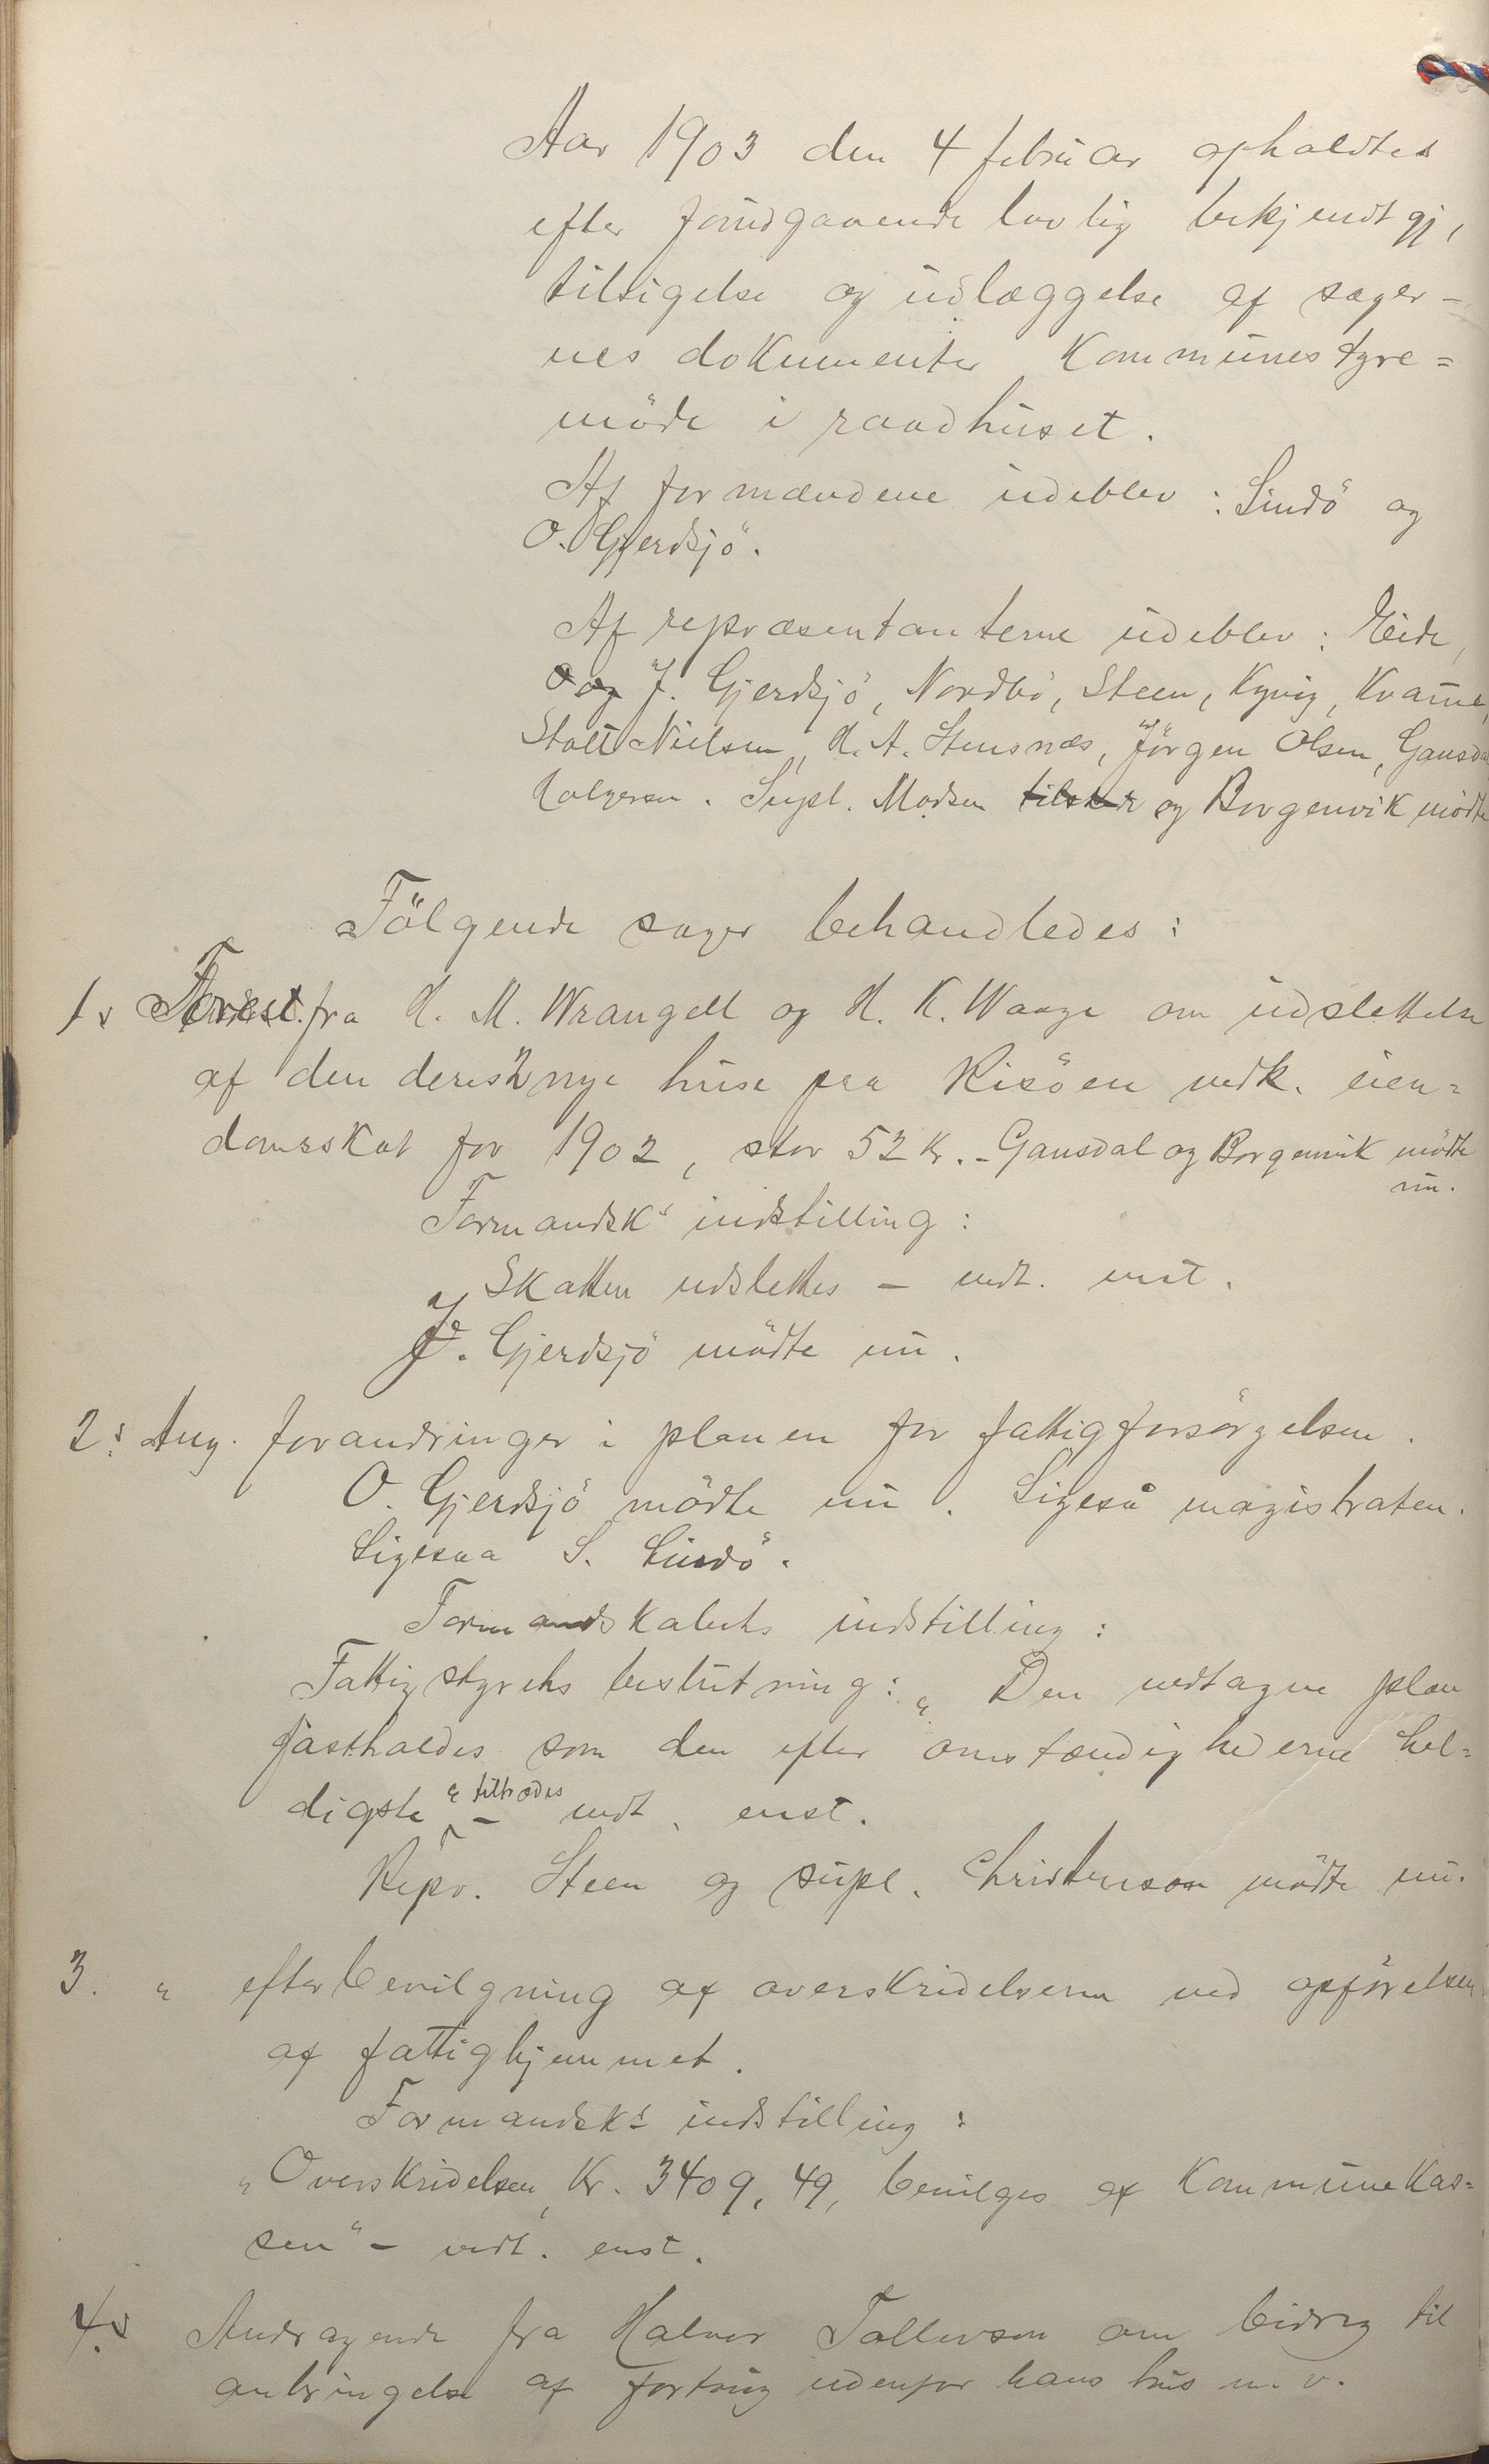 Aar 1903 den 4 februar opholdtes
efter forudgaaende lovlig bekjendtgj,
tilsigelse og udlæggelse af sager-
nes dokumenter Kommunestyre=
möde i raadhuset.
Af formændene udeblev: Sundö og
O. Gjerdsjö.
Af repræsentanterne udeblev: Eide,
J. Gjerdsjö, Nordbö, Steen, Kyvig, Kvamme,
Stolt Nielsen, H. A. Stensnæs, Jörgen Olsen, Gausdal
Holgersen. Supl. Madsen og Borgenvik mödte
Fölgende sager behandledes:
1. fra H. M. Wrangell og H. K. Waage om udslettelse
af den deres 2 nye huse paa Risöen vedk. eien=
domsskat for 1902, stor 52 Kr. - Gausdal og Borgenvik mödte
nu.
Formandsks indstilling:
Skatten udslettes - vedt. enst.
J. Gjerdsjö mödte nu.
2. Ang. forandringer i planen for fattigforsörgelsen.
O. Gjerdsjö mödte nu. Ligeså magistraten.
Ligesaa S. Sundö.
Formandskabets indstilling:
Fattigstyrets beslutning: „Den vedtagne plan
fastholdes som den efter omstændighederne hel=
digste" tiltrædes - vedt. enst.
Repr. Steen og supl. Christensen mödte nu.
3. " efterbevilgning af overskridelserne ved opförelsen
af fattighjemmet.
Formandsks indstilling:
„Overskridelsen, Kr. 3409,49, bevilges af Kommunekas=
sen" - vedt. enst.
4. Andragende fra Halvor Tallevsen om bidrag til
anbringelse af fortoug udenfor hans hus m. v.